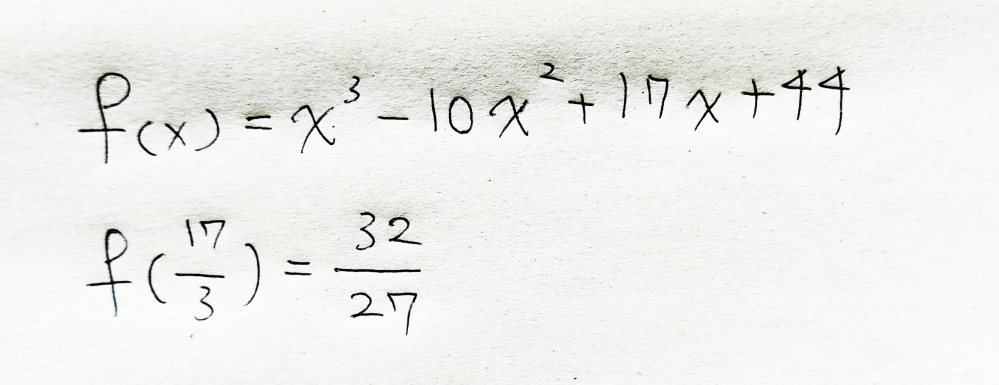 f(x) = x³ - 10x² + 17x + 44
f(17/3) = 32/27